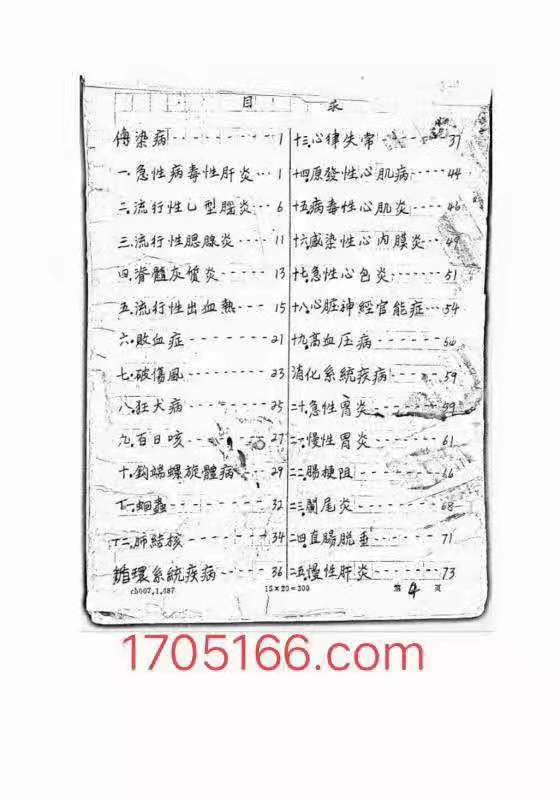 目 录
傳染病 1
一.急性病毒性肝炎 1
二.流行性乙型腦炎 6
三.流行性腮腺炎 11
四.脊髓灰質炎 13
五.流行性出血熱 15
六.敗血症 21
七.破傷風 23
八.狂犬病 25
九.百日咳 27
十.鈎端螺旋體病 29
十一.蛔蟲 32
十二.肺結核 34
循環系統疾病 36
十三.心律失常 37
十四.原發性心肌病 44
十五.病毒性心肌炎 46
十六.感染性心内膜炎 49
十七.急性心包炎 51
十八.心脏神經官能症 54
十九.高血压病 56
消化系統疾病 59
二十.急性胃炎 59
二一.慢性胃炎 61
二二.腸梗阻 66
二三.闌尾炎 68
二四.直腸脫垂 71
二五.慢性肝炎 73
15×20=300
第 4 页
1705166.com